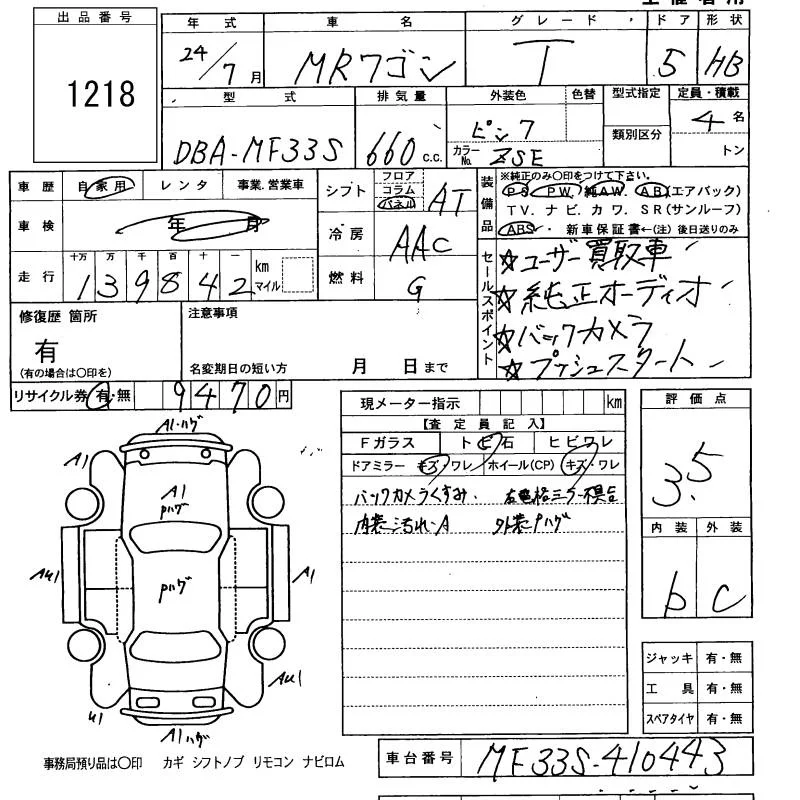 出品番号
1218
年式 車名 グレード ドア 形状
24/7月 MRワゴン T 5 HB
型式 排気量 外装色 色替 型式指定 定員・積載
DBA-MF33S 660c.c. ピンク カラーNo. ZSE 類別区分 4名
トン
車歴 自家用 レンタ 事業.営業車
車検 年 月
走行 十万 万 千 百 十 一
139842 km マイル
シフト フロア コラム パネル AT
冷房 AAC
燃料 G
装備品 ※純正のみ〇印をつけて下さい。
PS PW 純AW AB(エアバック)
TV. ナビ. カワ. SR(サンルーフ)
ABS・ 新車保証書←(注) 後日送りのみ
セールスポイント
☆ユーザー買取車
☆純正オーディオ
☆バックカメラ
☆プッシュスタート
修復歴 箇所 注意事項
有
(有の場合は〇印を) 名変期日の短い方 月 日まで
リサイクル券 有・無 9470円
現メーター指示 km
【査定員記入】
Fガラス トビ石 ヒビワレ
ドアミラー キズ・ワレ ホイール(CP) キズ・ワレ
バックカメラくすみ. 右電格ミラー不具合
内装汚れ・A 外装Pハゲ
評価点
3.5
内装 外装
b C
ジャッキ 有・無
工具 有・無
スペアタイヤ 有・無
A1・ハゲ
A1
A1
Pハゲ
AU1
Pハゲ
A1
AU1
U1
A1ハゲ
事務局預り品は〇印 カギ シフトノブ リモコン ナビロム
車台番号 MF33S-410443